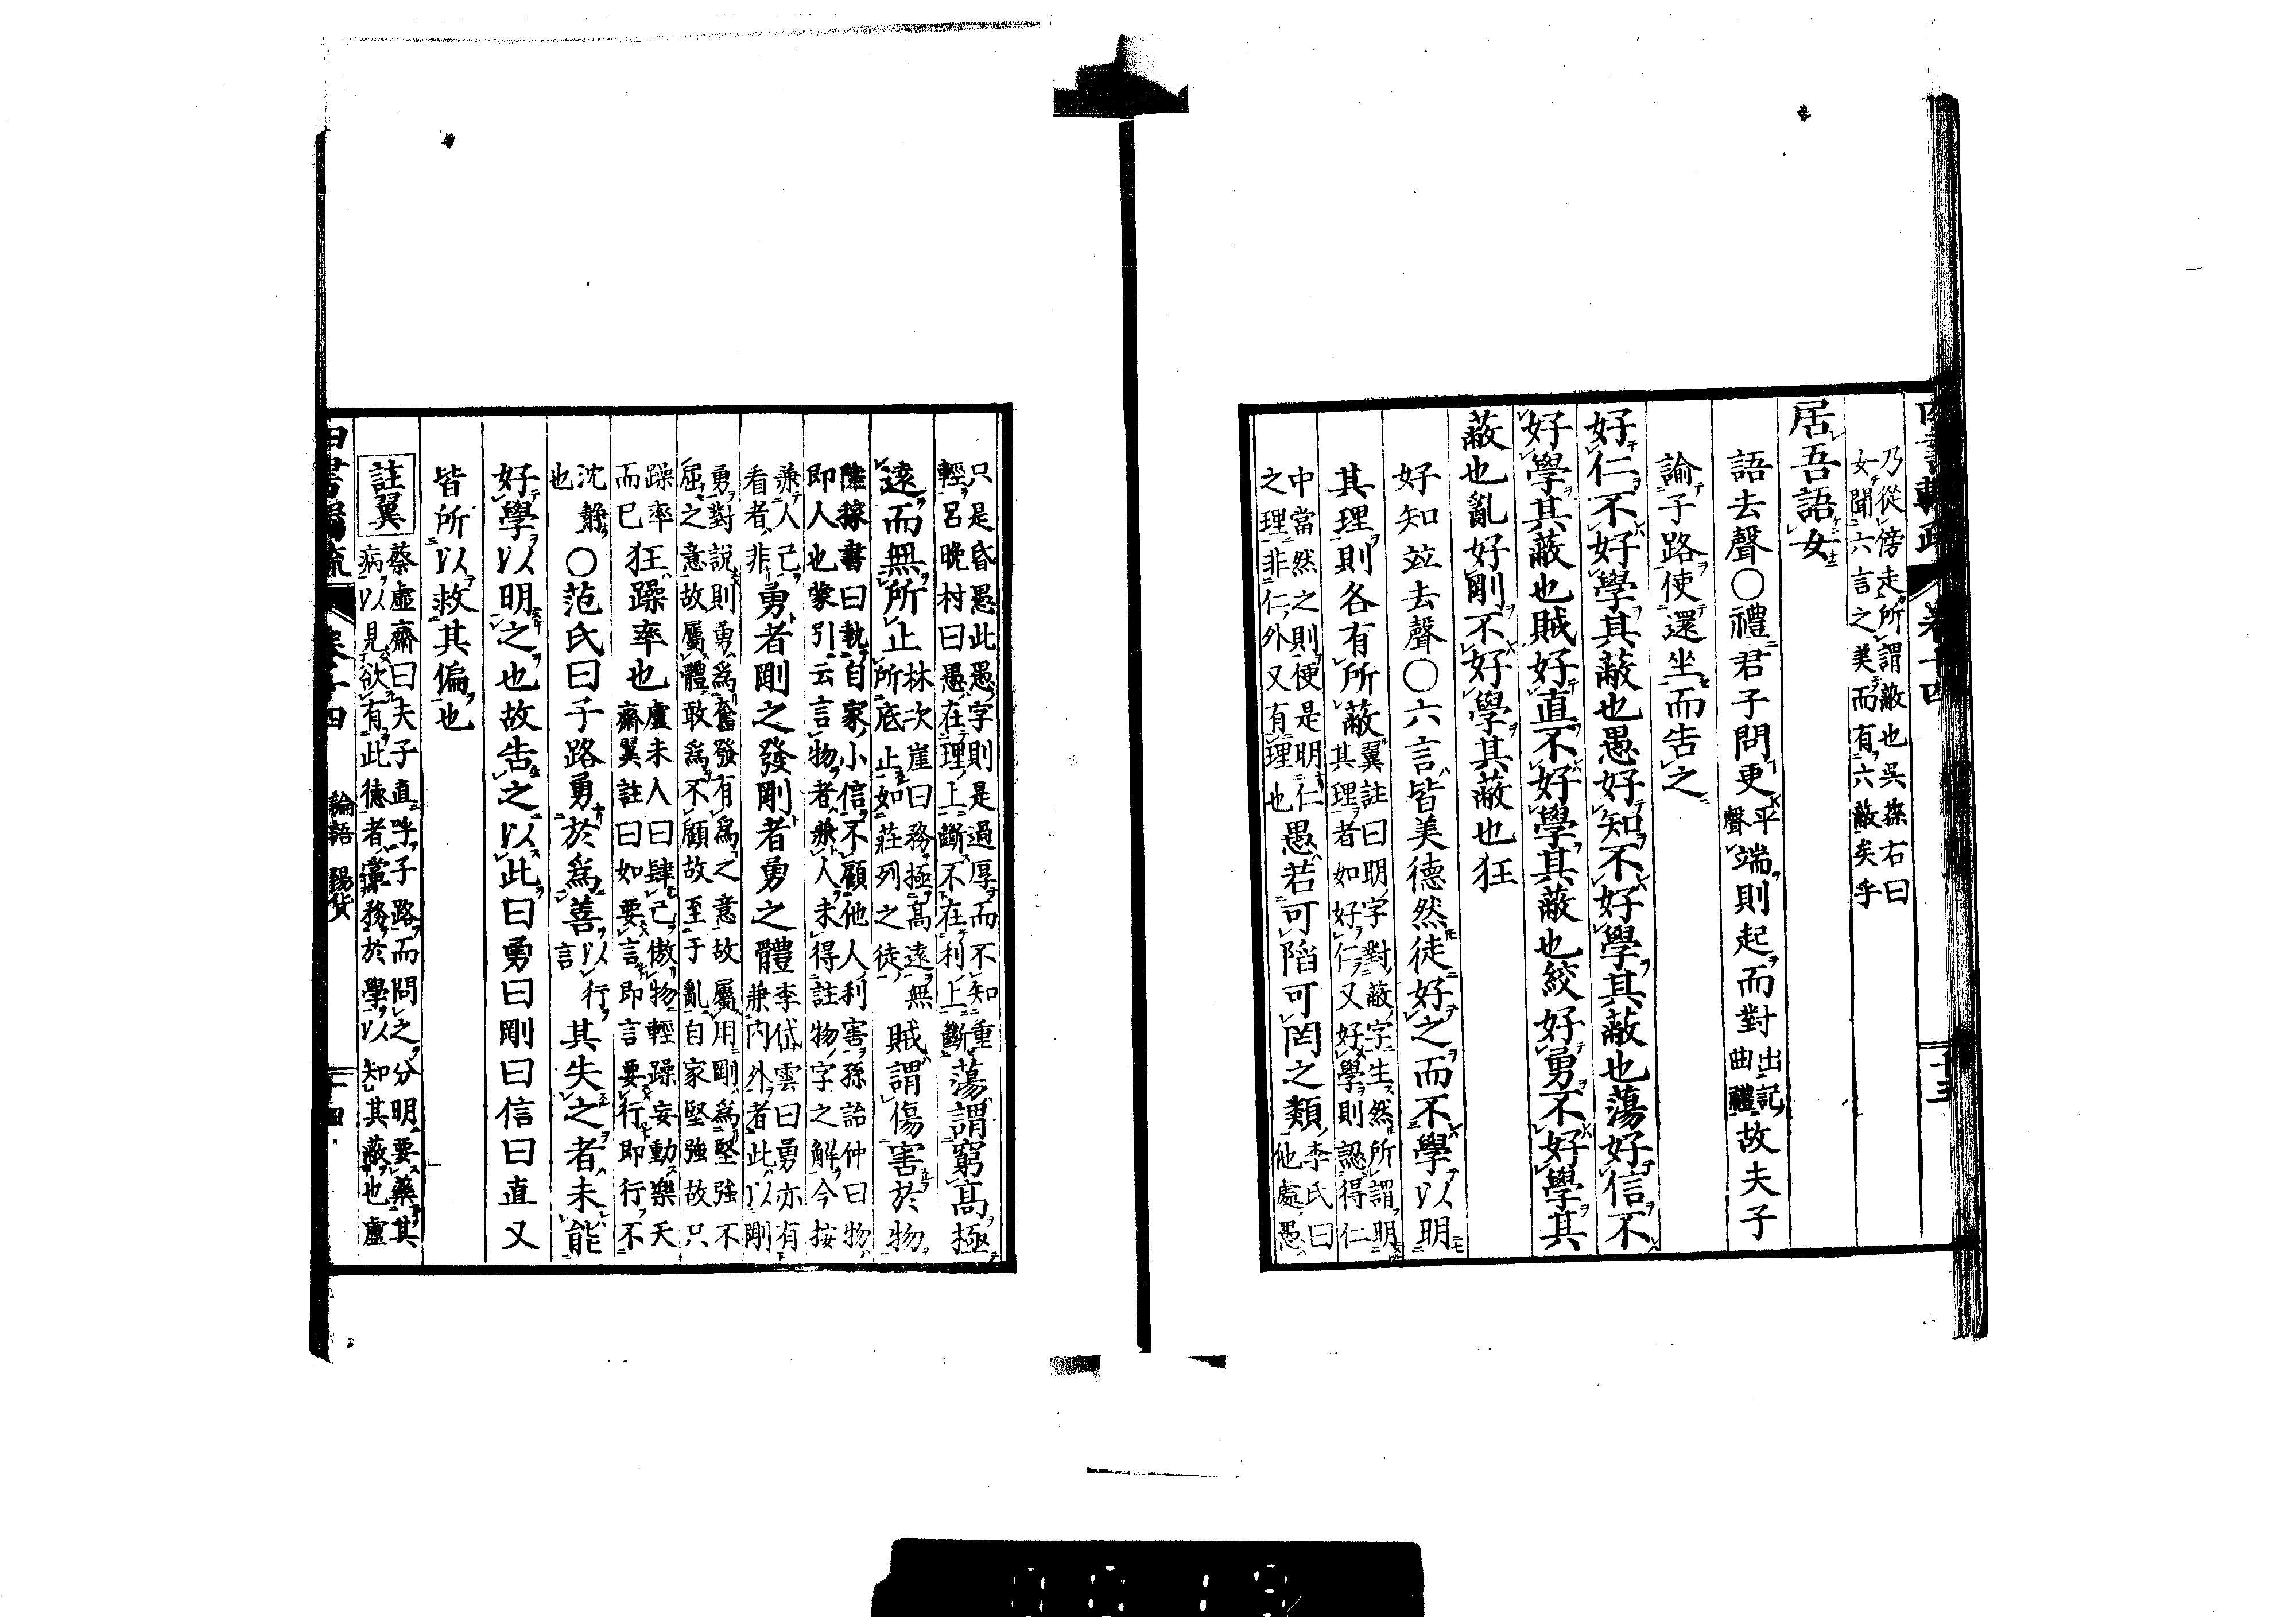 乃從傍走所謂蔽也吳蓀右曰
女聞六言之美而有六蔽矣乎
居吾語女
語去聲〇禮君子問更平聲端則起而對出記曲禮故夫子
諭子路使還坐而告之
好仁不好學其蔽也愚好知不好學其蔽也蕩好信不
好學其蔽也賊好直不好學其蔽也絞好勇不好學其
蔽也亂好剛不好學其蔽也狂
好知並去聲〇六言皆美德然徒好之而不學以明
其理則各有所蔽翼註曰明字對蔽字生然所謂明其理者如好仁又好學則認得仁
中當然之則便是明仁之理非仁外又有理也愚若可陷可罔之類李氏曰他處愚
只是昏愚此愚字則是過厚而不知重
輕呂晚村曰愚在理上斷不在利上斷蕩謂窮高極
遠而無所止林次崖曰務極高遠無所底止如莊列之徒賊謂傷害於物
陸稼書曰執自家小信不顧他人利害孫詒仲曰物
即人也蒙引云言物者兼人未得註物字之解今按
兼人己看者非勇者剛之發剛者勇之體李岱雲曰勇亦有兼内外者此以剛
勇對說則勇爲奮發有爲之意故屬用剛爲堅強不
屈之意故屬體敢爲不顧故至于亂自家堅強故只
躁率而已狂躁率也盧未人曰肆己傲物輕躁妄動樂天齋翼註曰如要言即言要行即行不
沈靜也〇范氏曰子路勇於爲善以行言其失之者未能
好學以明之也故告之以此曰勇曰剛曰信曰直又
皆所以救其偏也
註翼
蔡虛齋曰夫子直呼子路而問之分明要藥其
病以見欲有此德者當務於學以知其蔽也盧
卷十四
論語 陽貨